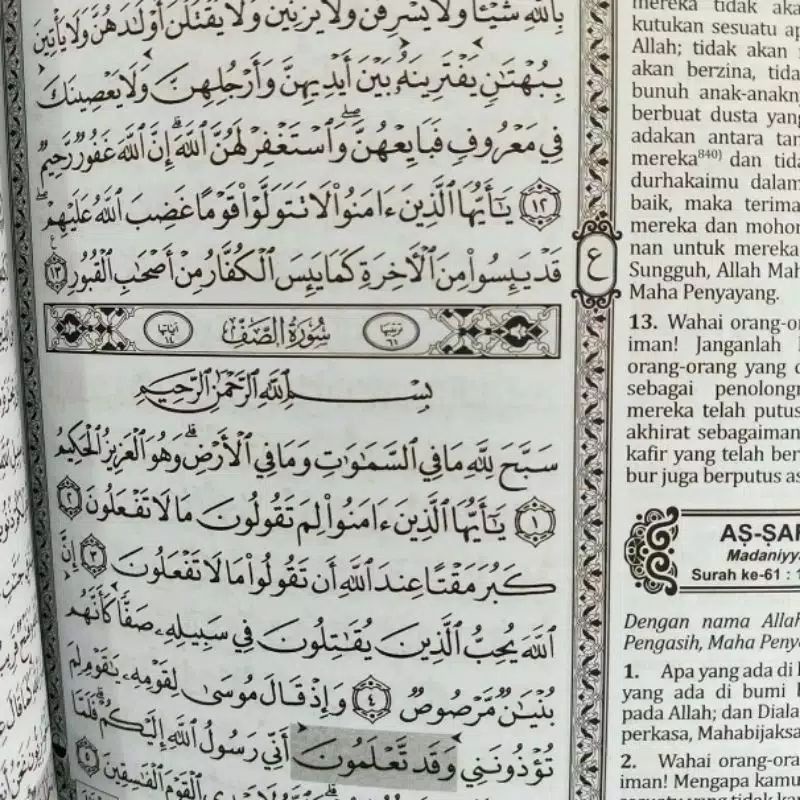 بِٱللَّهِ شَيْـًٔا وَلَا يَسْرِقْنَ وَلَا يَزْنِينَ وَلَا يَقْتُلْنَ أَوْلَٰدَهُنَّ وَلَا يَأْتِينَ
بِبُهْتَٰنٍ يَفْتَرِينَهُۥ بَيْنَ أَيْدِيهِنَّ وَأَرْجُلِهِنَّ وَلَا يَعْصِينَكَ
فِى مَعْرُوفٍ فَبَايِعْهُنَّ وَٱسْتَغْفِرْ لَهُنَّ ٱللَّهَ إِنَّ ٱللَّهَ غَفُورٌ رَّحِيمٌ
١٢ يَٰٓأَيُّهَا ٱلَّذِينَ ءَامَنُوا۟ لَا تَتَوَلَّوْا۟ قَوْمًا غَضِبَ ٱللَّهُ عَلَيْهِمْ
قَدْ يَئِسُوا۟ مِنَ ٱلْءَاخِرَةِ كَمَا يَئِسَ ٱلْكُفَّارُ مِنْ أَصْحَٰبِ ٱلْقُبُورِ ١٣
ع
ترتيبها ٦١ سُورَةُ الصَّفِّ آياتها ١٤
بِسْمِ ٱللَّهِ ٱلرَّحْمَٰنِ ٱلرَّحِيمِ
سَبَّحَ لِلَّهِ مَا فِى ٱلسَّمَٰوَٰتِ وَمَا فِى ٱلْأَرْضِ وَهُوَ ٱلْعَزِيزُ ٱلْحَكِيمُ
١ يَٰٓأَيُّهَا ٱلَّذِينَ ءَامَنُوا۟ لِمَ تَقُولُونَ مَا لَا تَفْعَلُونَ ٢
كَبُرَ مَقْتًا عِندَ ٱللَّهِ أَن تَقُولُوا۟ مَا لَا تَفْعَلُونَ ٣ إِنَّ
ٱللَّهَ يُحِبُّ ٱلَّذِينَ يُقَٰتِلُونَ فِى سَبِيلِهِۦ صَفًّا كَأَنَّهُم
بُنْيَٰنٌ مَّرْصُوصٌ ٤ وَإِذْ قَالَ مُوسَىٰ لِقَوْمِهِۦ يَٰقَوْمِ لِمَ
تُؤْذُونَنِى وَقَد تَّعْلَمُونَ أَنِّى رَسُولُ ٱللَّهِ إِلَيْكُمْ فَلَمَّا
ٱلْقَوْمَ ٱلْفَٰسِقِينَ ٥
mereka tidak
kutukan sesuatu
Allah; tidak akan
akan berzina,
bunuh
berbuat dusta yang
adakan antara
mereka⁸⁴⁰⁾ dan
durhakaimu dalam
baik, maka
mereka dan
nan untuk mereka
Sungguh, Allah
Maha Penyayang.
13. Wahai
iman! Janganlah
orang-orang yang
sebagai
mereka telah
akhirat
kafir yang telah
bur juga berputus
Surah ke-61 :
Dengan nama
Pengasih, Maha
1. Apa yang ada di
yang ada di bumi
pada Allah; dan
perkasa,
2. Wahai
iman! Mengapa kamu